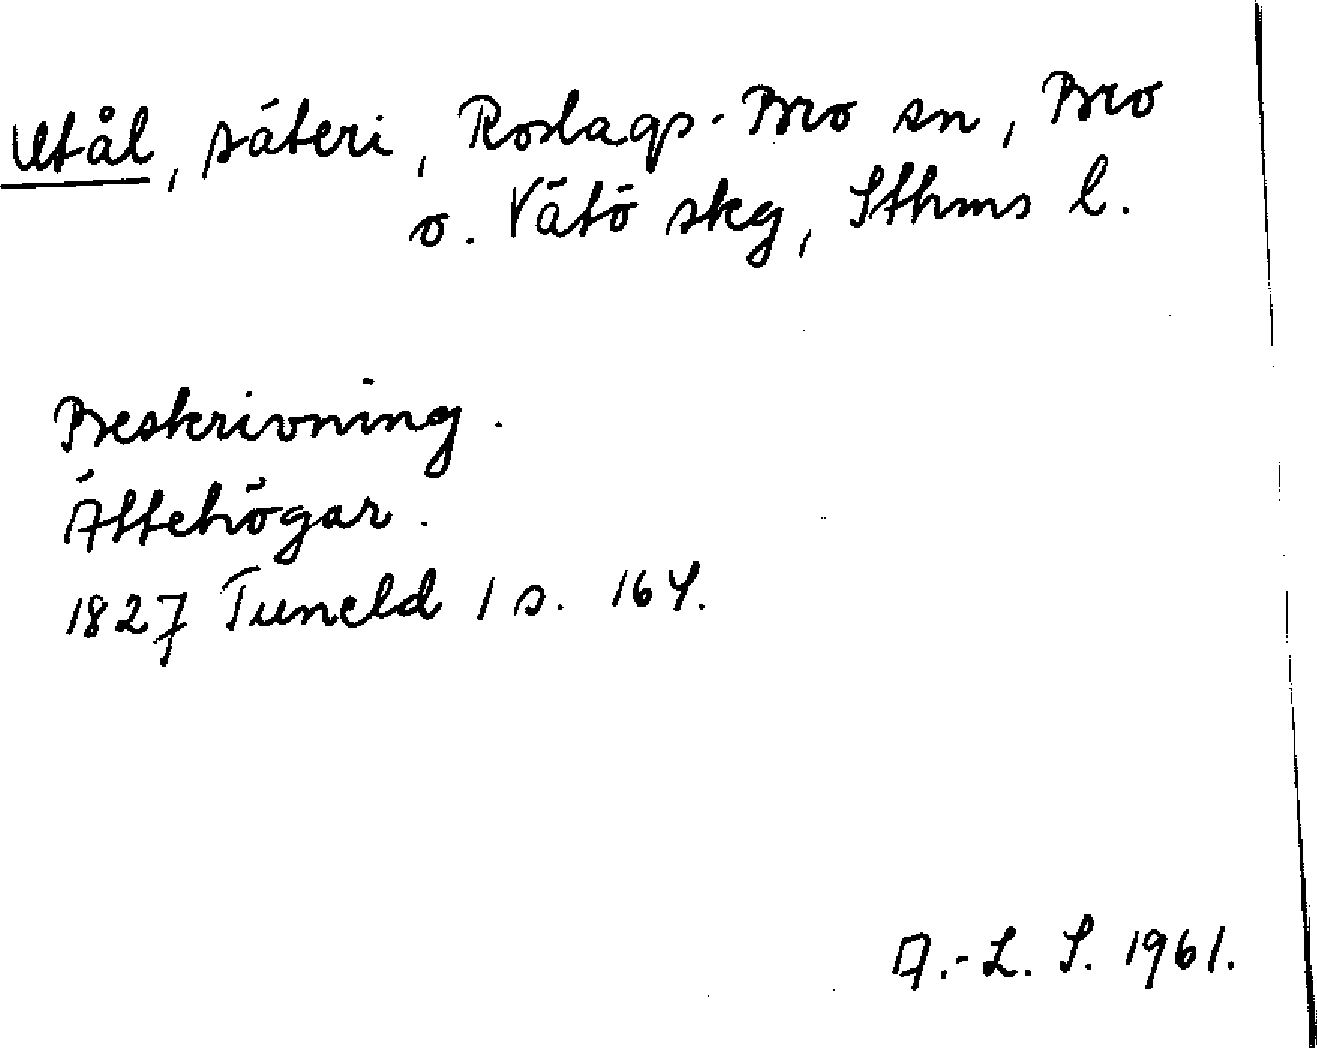 Utål, säteri, Roslags-Bro sn, Bro
o. Vätö skg, Sthms l.
Beskrivning.
Ättehögar.
1827 Tuneld I s. 164.
A.-L. S. 1961.